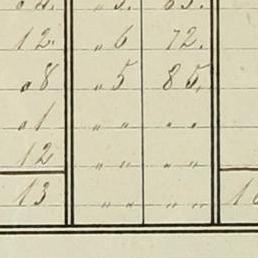 12. " 6 72.
" 8 " 5 85.
" 1 " " " "
12 " " " "
13 " " " "